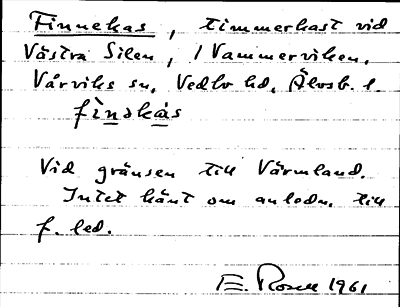 Finnekas, timmerkast vid
Västra Silen, i Vammerviken.
Vårviks sn, Vedbo hd, Älvsb. l.
finskås
Vid gränsen till Värmland.
Intet känt om anledn. till
f. led.
E. Rosell 1961